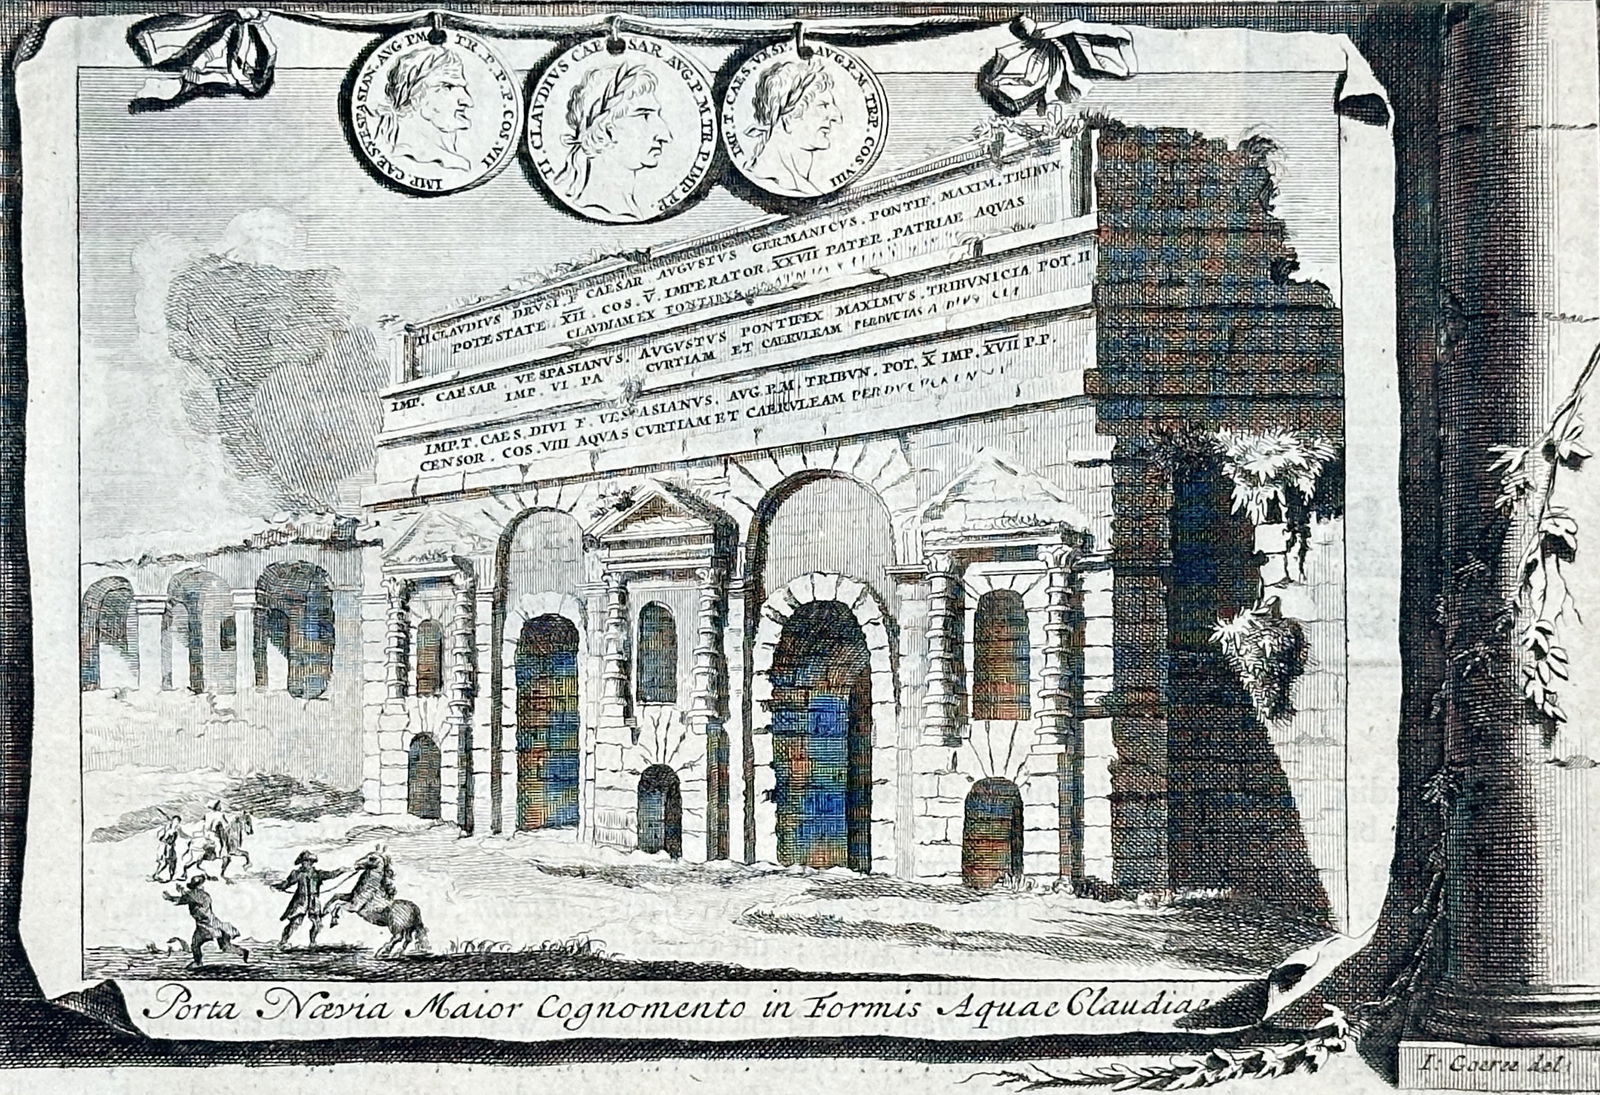 IMP. CAES. VESPASIAN. AVG. P.M. TR. P. P. P. COS. VII
TI CLAVDIVS CAESAR AVG. P. M. TR. P. IMP. P.P.
IMP. T. CAES. VESP. AVG. P. M. TR. P. COS. VIII
TI CLAVDIVS DRVSI. F. CAESAR AVGVSTVS GERMANICVS. PONTIF. MAXIM. TRIBVN.
POTESTATE. XII. COS. V. IMPERATOR. XXVII PATER. PATRIAE AQVAS
CLAVDIAM EX FONTIBVS
IMP. CAESAR. VESPASIANVS. AVGVSTVS PONTIFEX MAXIMVS. TRIBVNICIA POT. II
IMP. VI. PA CVRTIAM ET CAERVLEAM PERDVCTAS A DIVO
IMP. T. CAES. DIVI F. VESPASIANVS. AVG. P.M. TRIBVN. POT. X IMP. XVII P.P.
CENSOR. COS. VIII AQVAS CVRTIAM ET CAERVLEAM
Porta Nævia Maior Cognomento in Formis Aquae Claudiae
I: Goeree del.